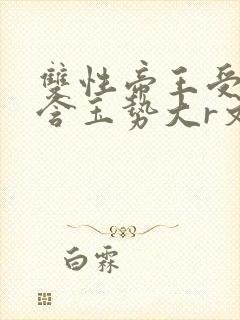 雙性帝王受
含玉势大r文
白霖